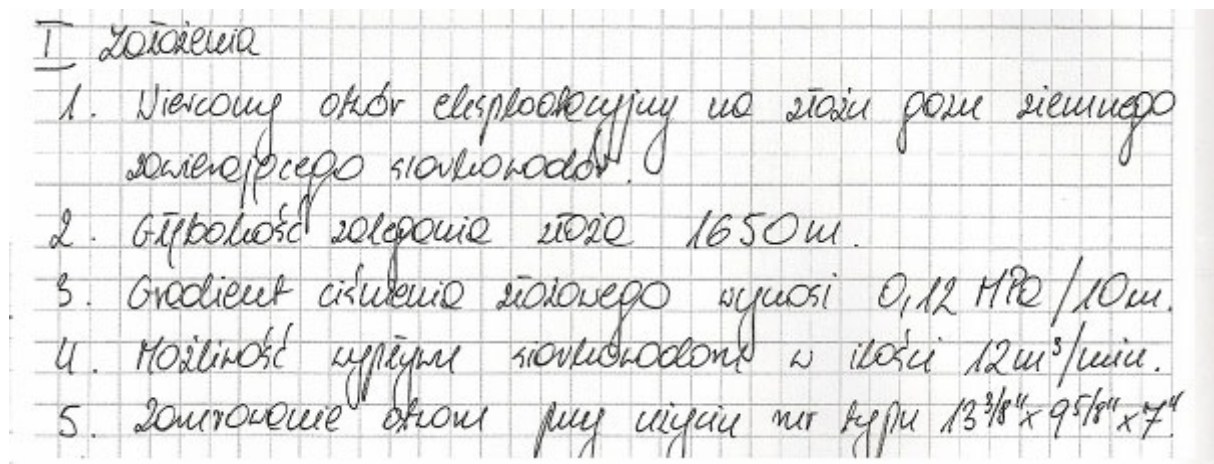 I Założenia
1. Wiercony otwór eksploatacyjny na złożu gazu ziemnego
zawierającego siarkowodór.
2. Głębokość zalegania złoża 1650m.
3. Gradient ciśnienia złożowego wynosi 0,12 MPa/10m.
4. Możliwość wypływu siarkowodoru w ilości 12m³/min.
5. Zarurowanie otworu przy użyciu rur typu 13 3/8" x 9 5/8" x 7"